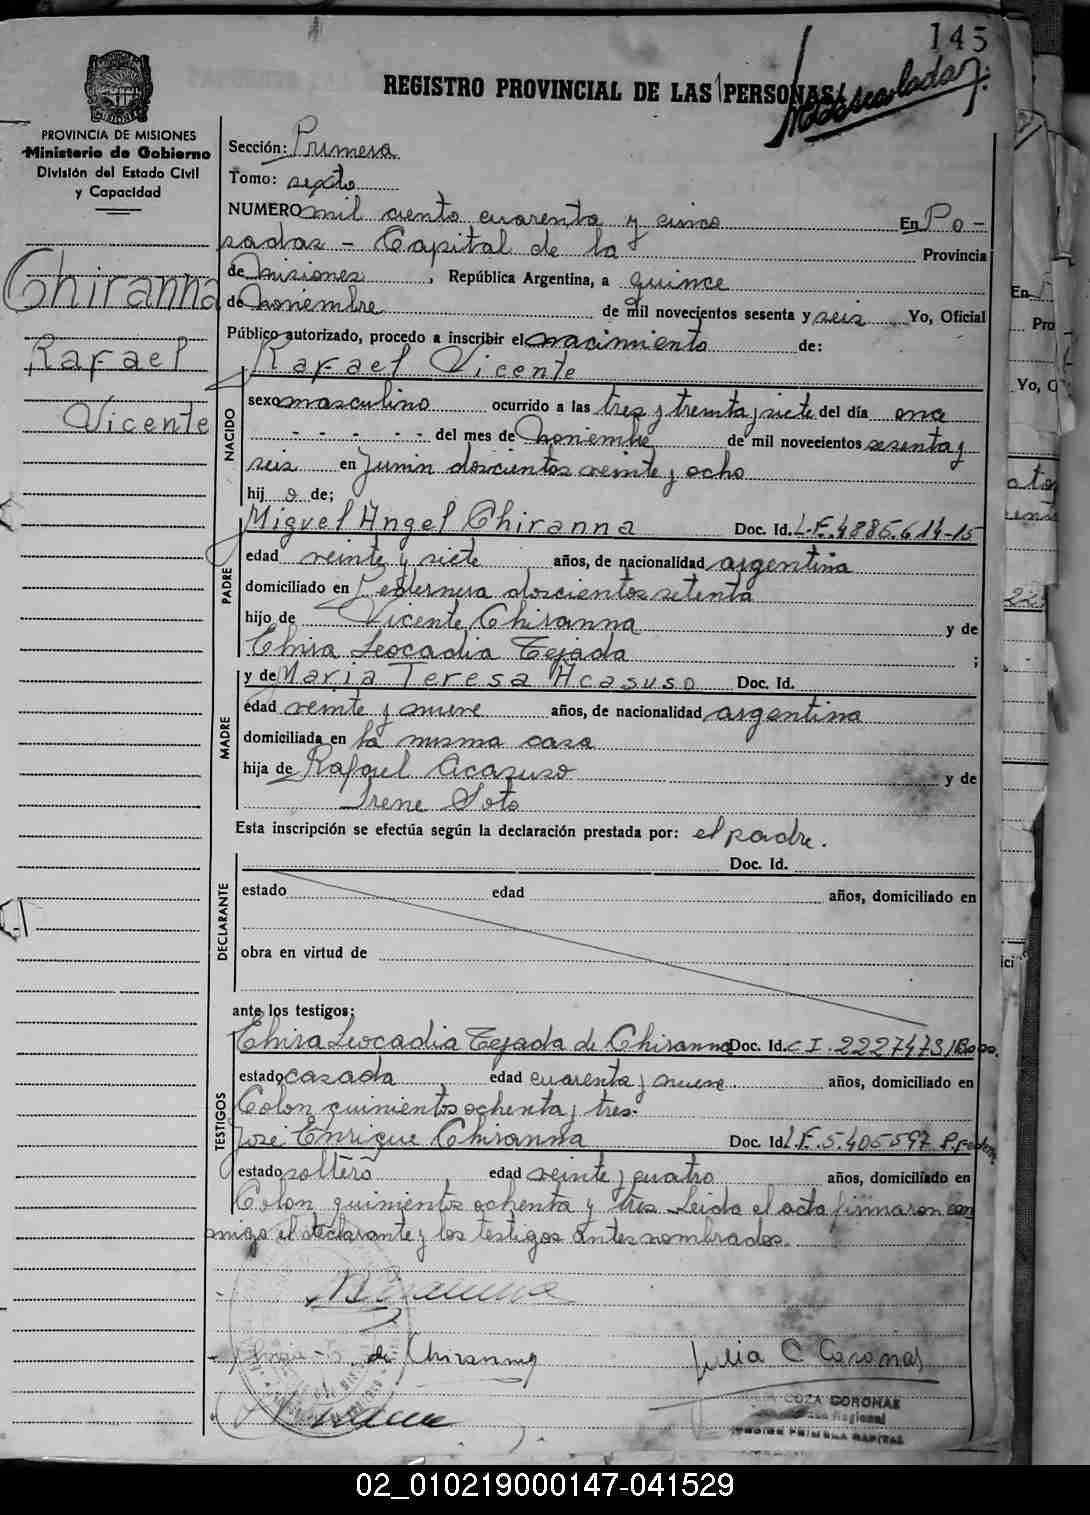 145
REGISTRO PROVINCIAL DE LAS PERSONAS
PROVINCIA DE MISIONES
Ministerio de Gobierno
División del Estado Civil
y Capacidad
Chiranna
Rafael
Vicente
Sección: Primera
Tomo: sexto
NUMERO mil ciento cuarenta y cinco En Po-
sadas - Capital de la Provincia
de Misiones, República Argentina, a quince
de Noviembre de mil novecientos sesenta y seis Yo, Oficial
Público autorizado, procedo a inscribir el nacimiento de:
Rafael Vicente
NACIDO
sexo masculino ocurrido a las tres y treinta y siete del día once
- - - - - del mes de Noviembre de mil novecientos sesenta y
seis en Junin doscientos veinte y ocho
hij o de;
PADRE
Miguel Angel Chiranna Doc. Id. L.E. 4885.614-15
edad veinte y siete años, de nacionalidad argentina
domiciliado en Pedernera doscientos setenta
hijo de Vicente Chiranna y de
Elvira Leocadia Tejada ;
MADRE
y de Maria Teresa Acasuso Doc. Id.
edad veinte y nueve años, de nacionalidad argentina
domiciliada en la misma casa
hija de Rafael Acasuso y de
Irene Soto
Esta inscripción se efectúa según la declaración prestada por: el padre.
DECLARANTE
Doc. Id.
estado edad años, domiciliado en
obra en virtud de
ante los testigos:
TESTIGOS
Elvira Leocadia Tejada de Chiranna Doc. Id. C I. 2227473
estado casada edad cuarenta y nueve años, domiciliado en
Colon quinientos ochenta y tres.
José Enrique Chiranna Doc. Id. L.E. 5.405597
estado soltero edad veinte y cuatro años, domiciliado en
Colon quinientos ochenta y tres Leida el acta firmaron con
migo el declarante y los testigos antes nombrados.
de Chiranna
Julia C Coronas
COZA CORONAS
Regional
PRIMERA CAPITAL
02_010219000147-041529